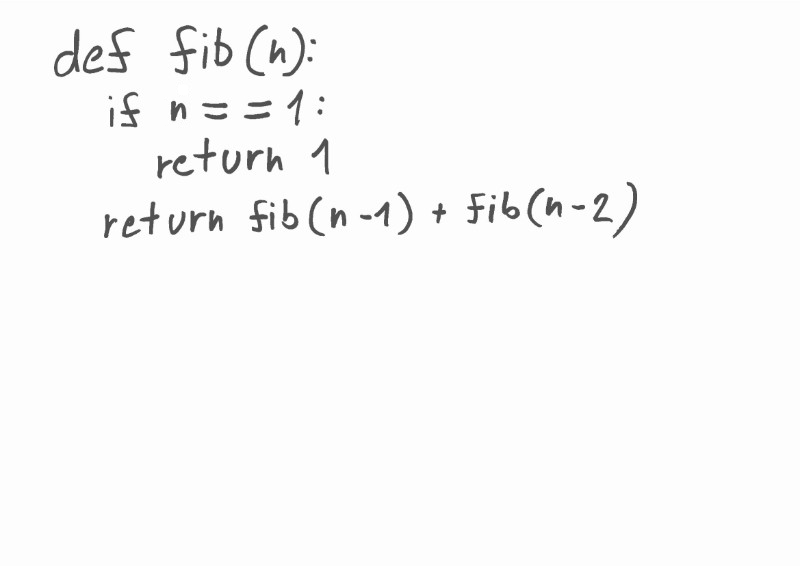 def fib(n):
if n == 1:
return 1
return fib(n-1) + fib(n-2)